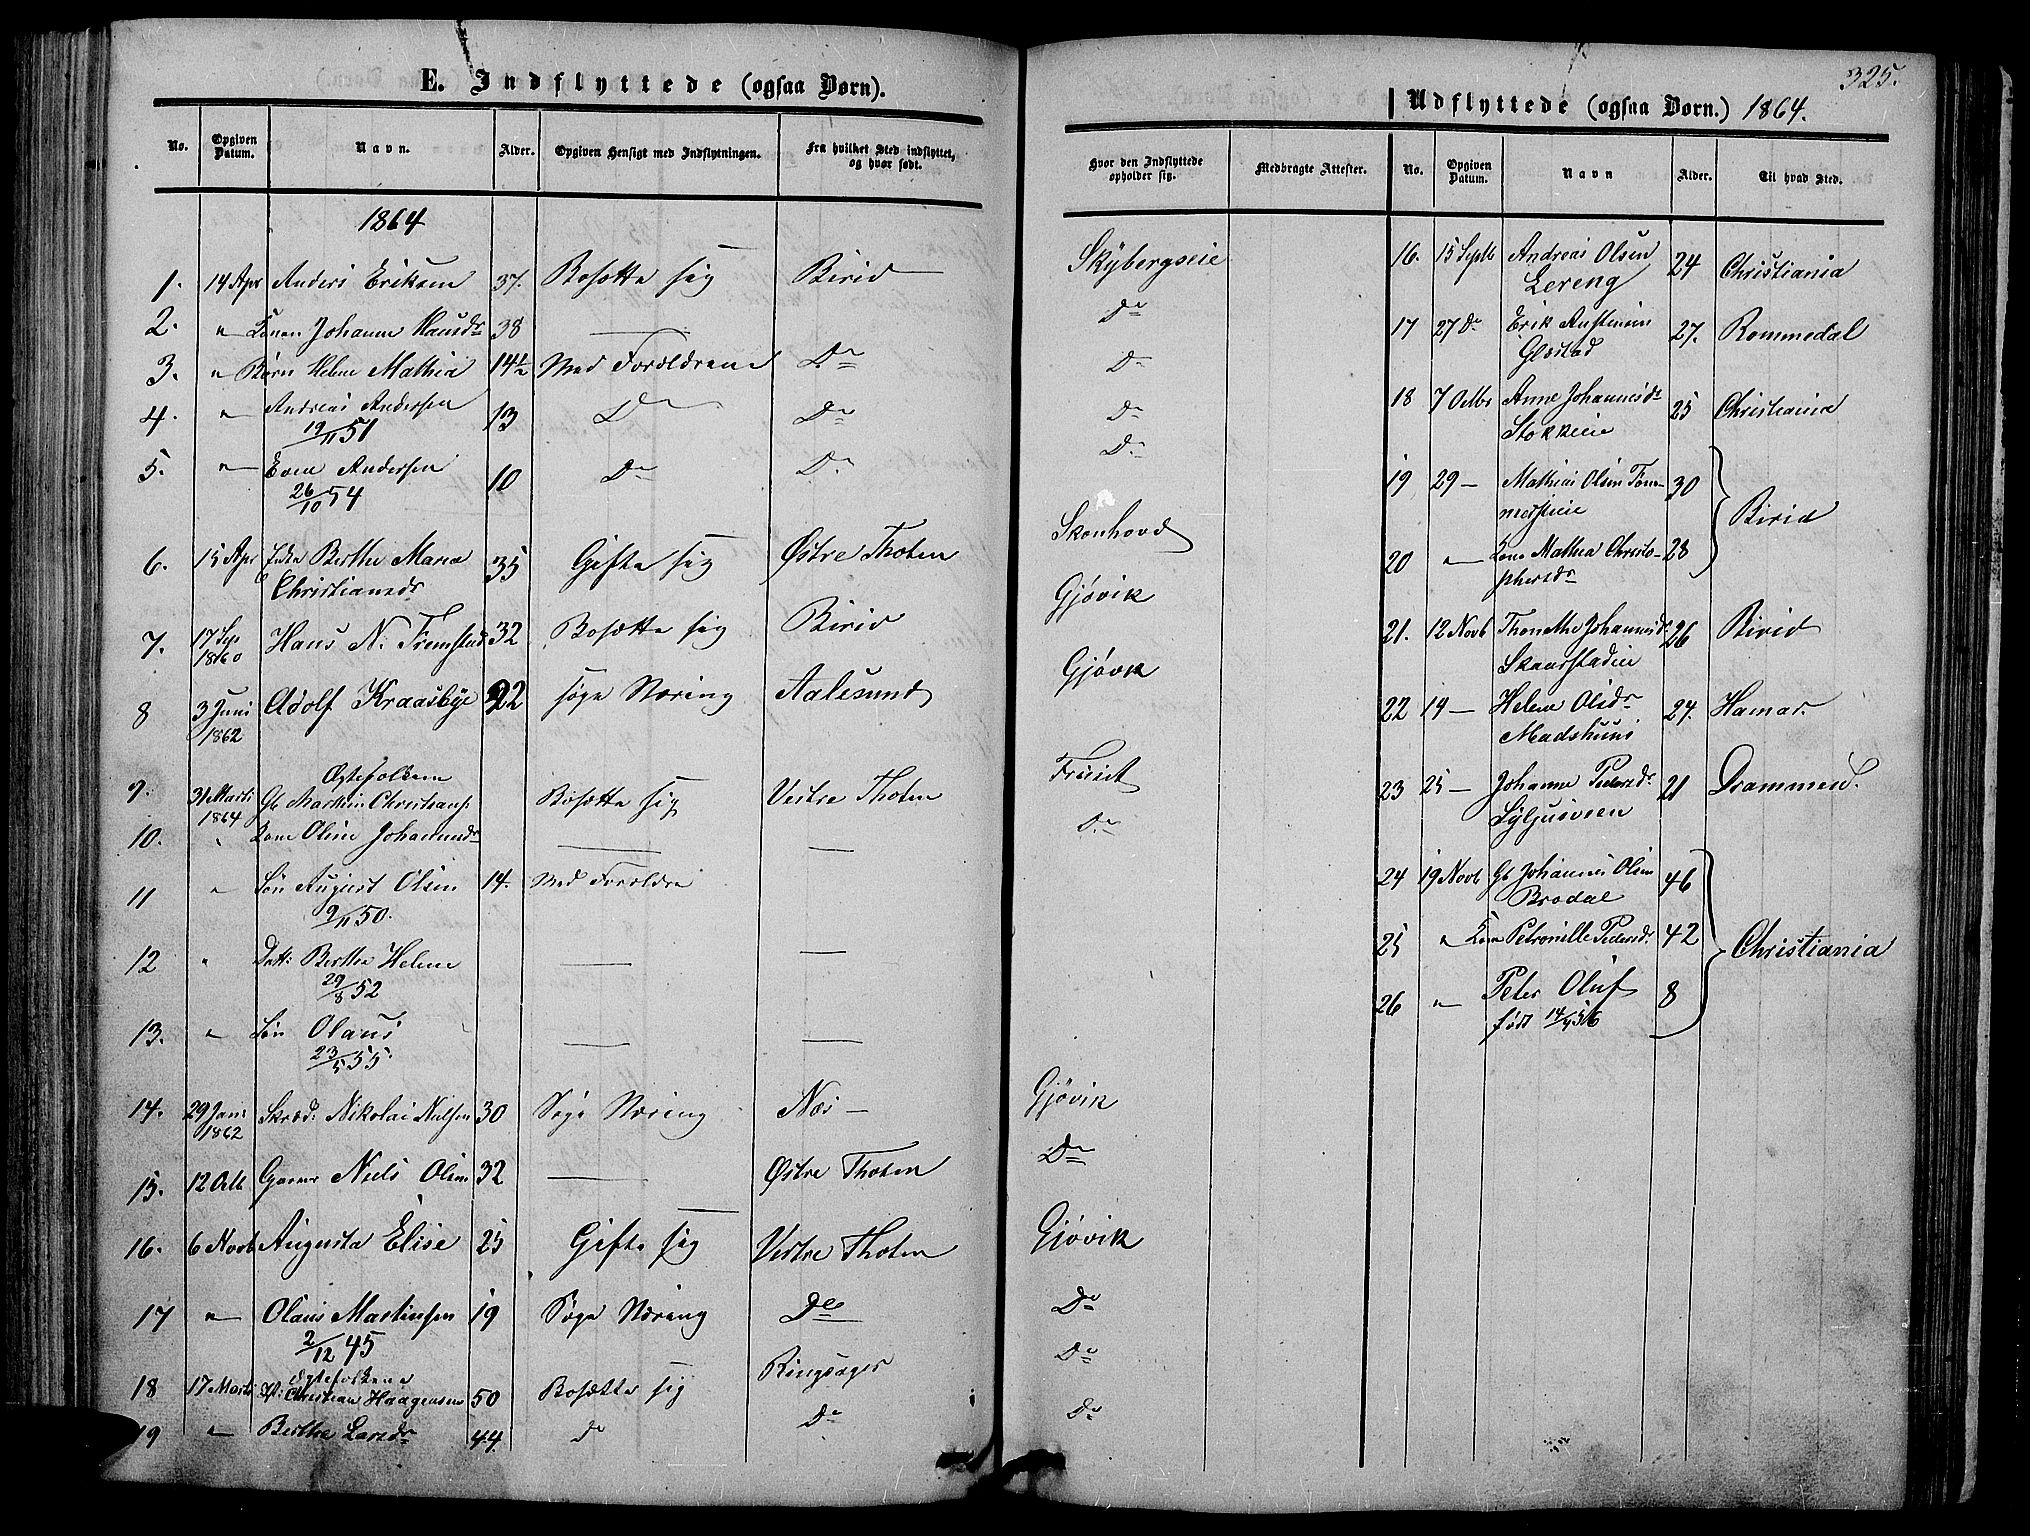 E. Indflyttede (ogsaa Børn).
No. Opgiven Datum. Navn. Alder. Opgiven Hensigt med Indflytningen. Fra hvilket Sted indflyttet, og hvor født.
1864
1. 14 Apr Anders Eriksen 37. Bosætte sig Birid
2. " Konen Johanne Hansdr 38
3. " Børn Helene Mathea 14½ Med Forældrene Do
4. " Andreas Andersen 13 Do Do
19/11 51
5. " Even Andersen 10 Do Do
26/10 54
6. 15 Apr Enke Berthe Maria 35 Gifte sig Østre Thoten
Christiansdr
7. 17 Sep 1860 Hans N. Fremstad 32 Bosætte sig Birid
8 3 Juni 1862 Adolf Kraasbye 22 søge Næring Aalesund
Ægtefolkene
9. 31 Marts 1864 Gb Martin Christians Bosætte sig Vestre Thoten
10. " Kone Oline Johannesdr
11 " Søn August Olsen 14. Med Forældre
9/11 50.
12 " Datt: Berthe Helene
29/8 52
13. " Søn Olaus
23/5 55
14. 29 Jan 1862 Skræd: Nikolai Nielsen 30 Søge Næring Næs
15. 12 Octb Garver Niels Olsen 32 Østre Thoten
16. 6 Novb Augusta Elise 25 Gifte sig Vestre Thoten
17 " Olaus Martinsen 19 Søge Næring Do
2/12 45
Ægtefolkene
18 17 Marts Christian Haagensen 50 Bosætte sig Ringsager
19 " Berthe Larsdr 44. do Do
325.
Udflyttede (ogsaa Børn.) 1864.
Hvor den Indflyttede opholder sig. Medbragte Attester. No. Opgiven Datum. Navn Alder. Til hvad Sted.
Skybergseie
Do
Do
Do
Do
Skonhovd
Gjøvik
Gjøvik
Do
Gjøvik
Do
Gjøvik
Do
Do
Do
16. 15 Septb Andreas Olsen 24 Christiania
Lereng
17 27 Do Erik Austinsen 27. Rommedal
Glæstad
18 7 Octbr Anne Johannesdr 25 Christiania
Stokkeie
19 29 — Mathias Olsen Tom- 30 Birid
20 " Kone Mathea Christo- 28
phersdr
21. 12 Novb Thonethe Johannesdr 26 Birid
Skaarstadeie
22 19 — Helene Olsdr 24. Hamar.
Madshuus
23 25 — Johanne Pedersdr 21 Drammen.
Syljusveen
24 19 Novb Gb Johannes Olsen 46 Christiania
Brodal
25 " Kone Petronille Pedersdr 42
26 " Peter Oluf 8
født 14/4 56